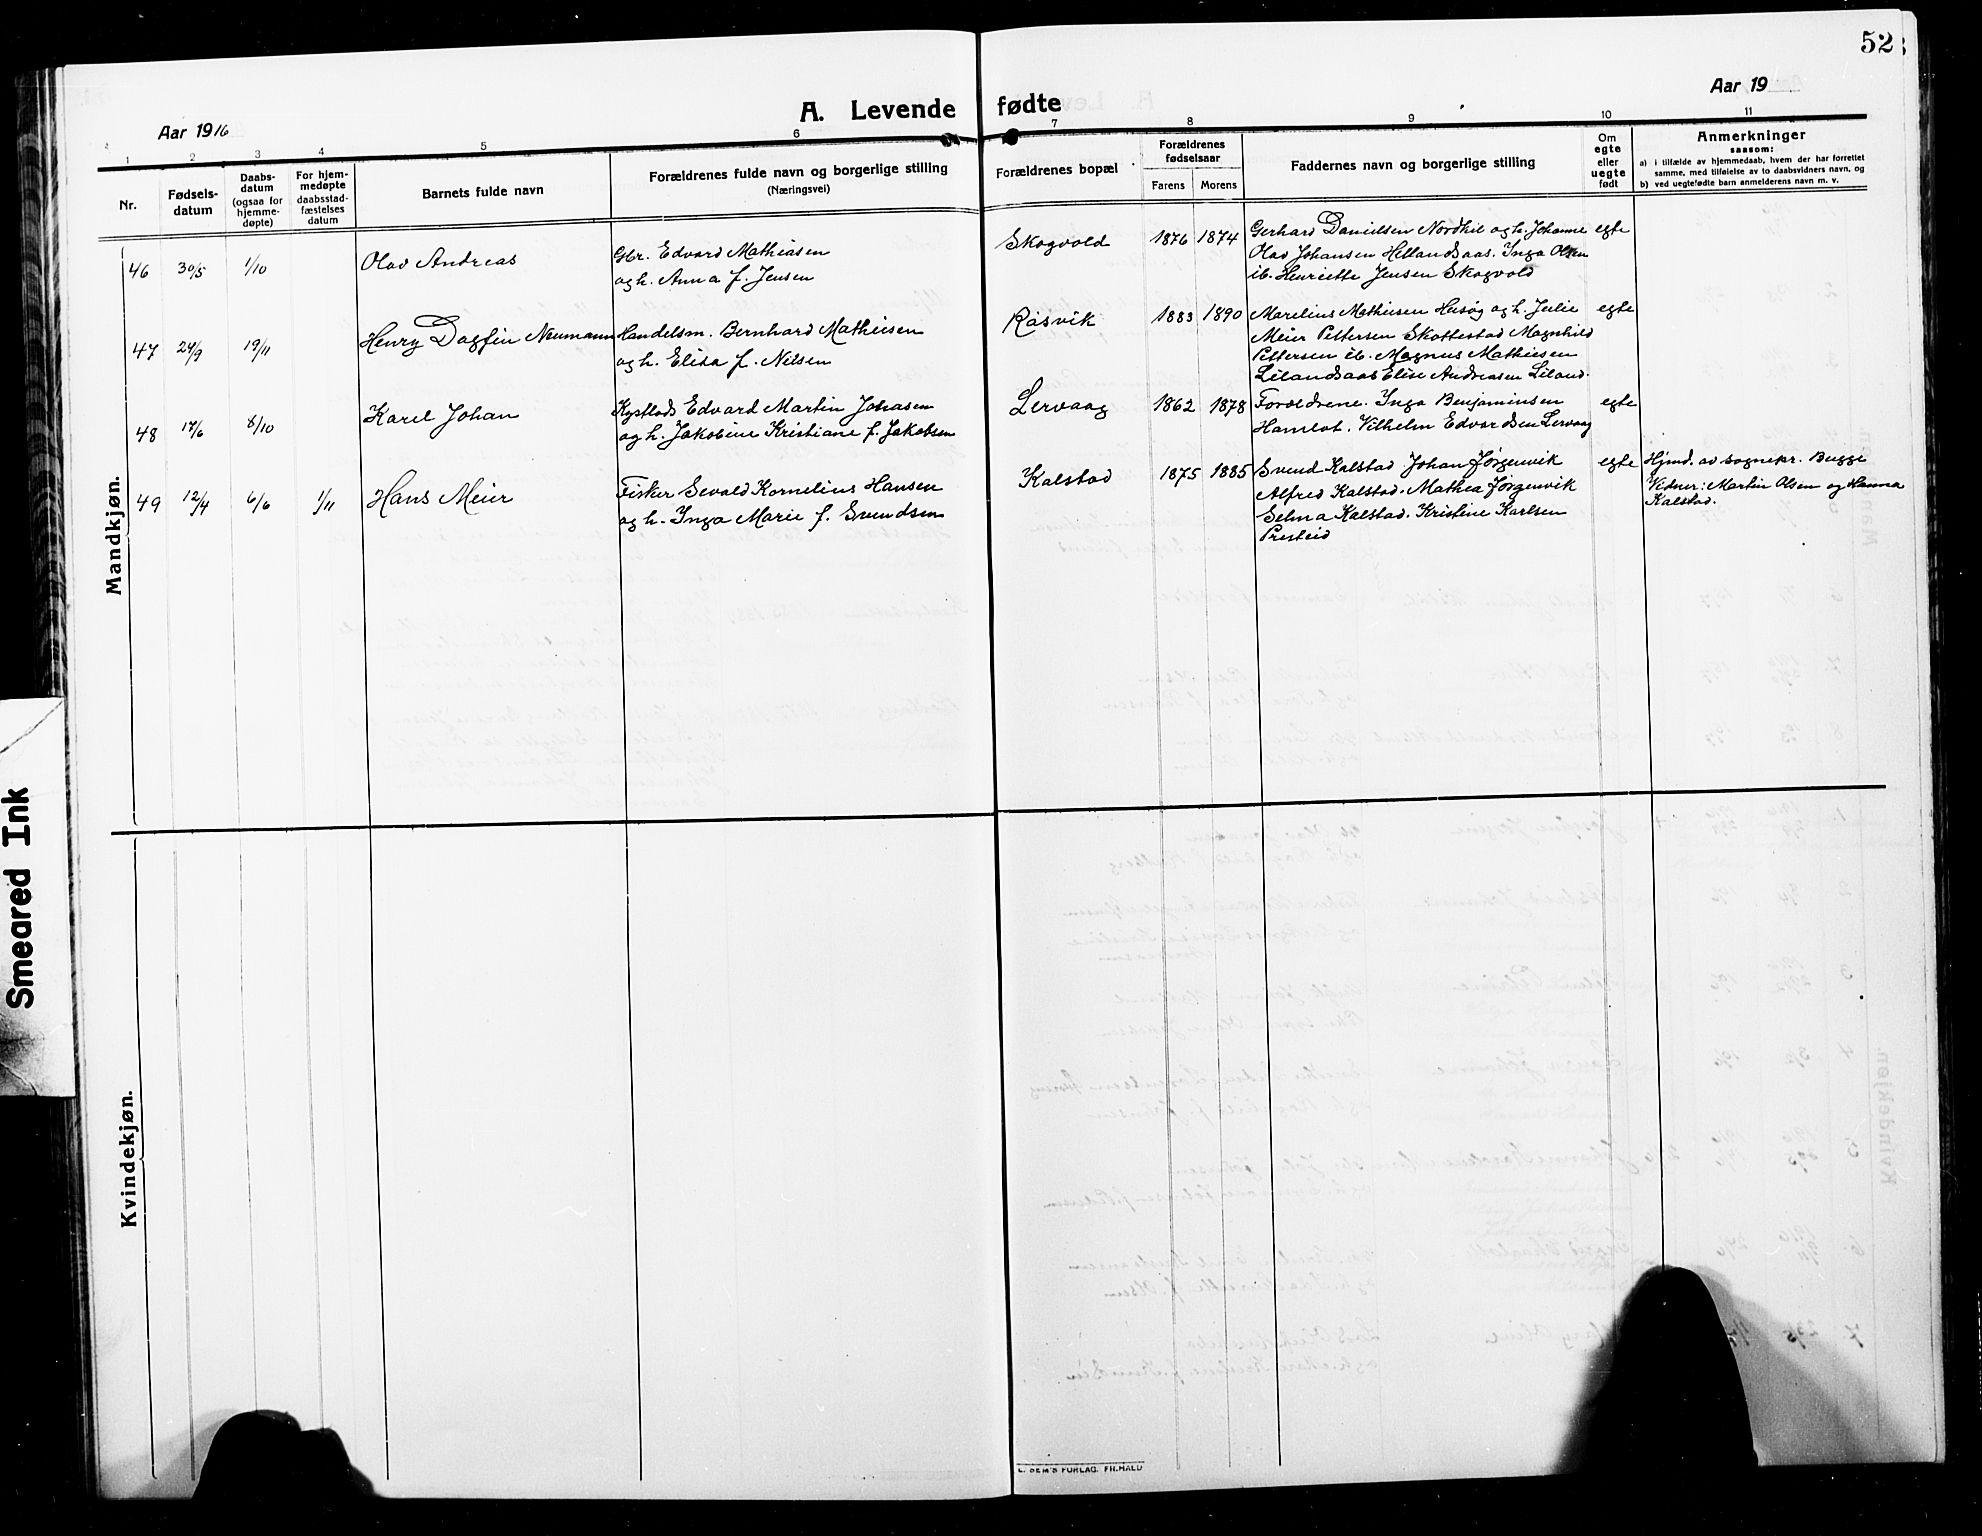 52
Aar 1916
A. Levende fødte
Aar 19
1 2 3 4 5 6 7 8 9 10 11
Nr.
Fødsels-
datum
Daabs-
datum
(ogsaa for
hjemme-
døpte)
For hjem-
medøpte
daabsstad-
fæstelses
datum
Barnets fulde navn
Forældrenes fulde navn og borgerlige stilling
(Næringsvei)
Forældrenes bopæl
Forældrenes
fødselsaar
Farens Morens
Faddernes navn og borgerlige stilling
Om
egte
eller
uegte
født
Anmerkninger
saasom:
a) i tilfælde av hjemmedaab, hvem der har forrettet
samme, med tilføielse av to daabsvidners navn, og
b) ved uegtefødte barn anmelderens navn m. v.
Mandkjøn.
46 30/5 1/10 Olav Andreas
Gbr. Edvard Mathiasen
og h. Anna f. Jensen
Skogvold 1876 1874
Gerhard Danielsen Nordkil og h. Johanne
Olav Johansen Hellandsaas. Inga Olsen
ib. Henriette Jensen Skogvold
egte
47 24/9 19/11 Henry Dagfin Neumann
Handelsm. Bernhard Mathiesen
og h. Elisa f. Nilsen
Råsvik 1883 1890
Marelius Mathiesen Husøy og h. Julie
Meier Pettersen Skottestad Magnhild
Pettersen ib. Magnus Mathiesen
Lilandsaas Elise Andreasen Liland.
egte
48 17/6 8/10 Karel Johan
Kystlods Edvard Martin Johasen
og h. Jakobine Kristiane f. Jakobsen
Lervaag 1862 1878
Forældrene. Inga Benjaminsen
Hamlot. Vilhelm Edvardsen Lervaag
egte
49 12/4 6/6 1/11 Hans Meier
Fisker Sevald Kornelius Hansen
og h. Inga Marie f. Svendsen
Kalstad 1875 1885
Svend Kalstad Johan Jørgenvik
Alfred Kalstad. Mathea Jørgenvik
Selma Kalstad. Kristine Karlsen
Presteid
egte
Hjmd. av sognepr. Bugge
Vidner: Martin Olsen og Hanna
Kalstad.
Kvindekjøn.
Smeared Ink
SEM'S FORLAG. FR.HALD